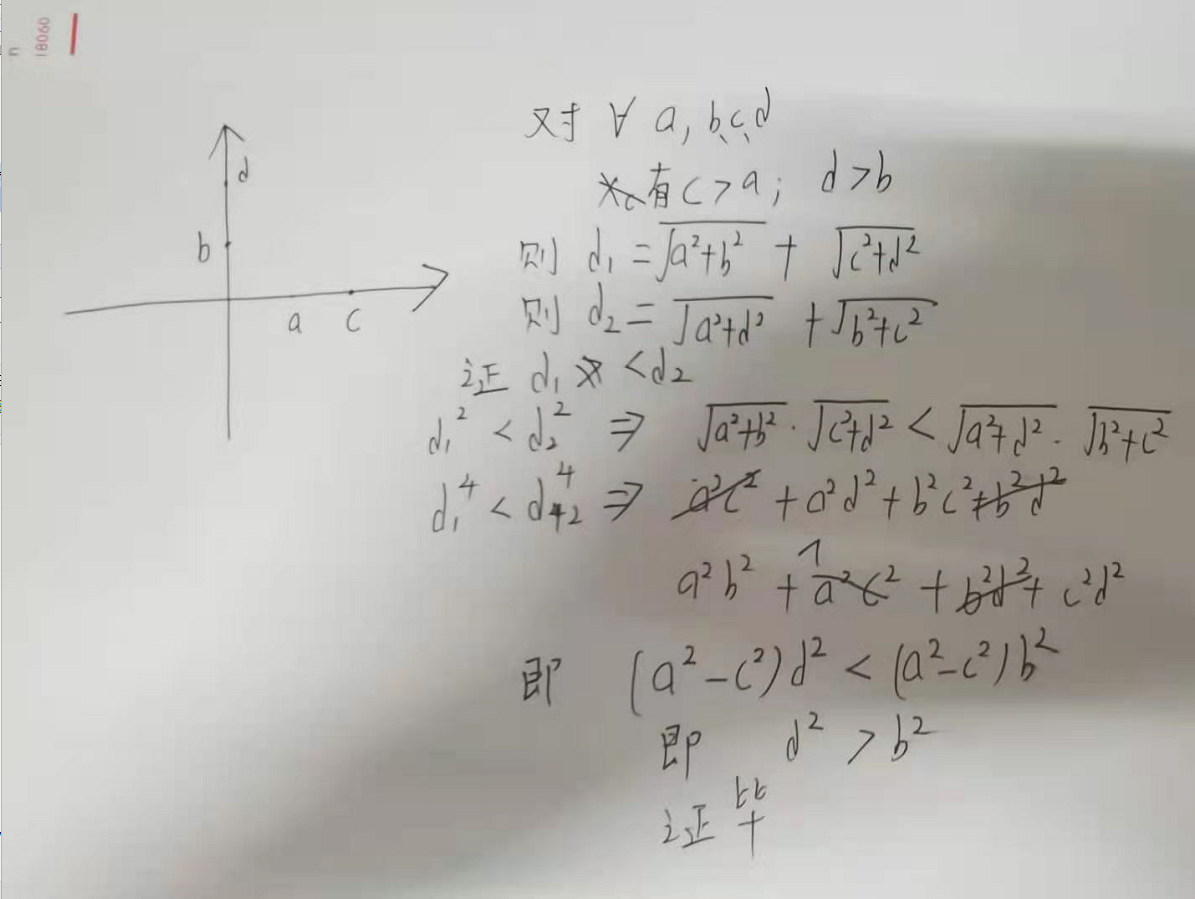 18060
n
d
b
a c
对 ∀ a, b, c, d
有 c > a; d > b
则 d₁ = √(a²+b²) + √(c²+d²)
则 d₂ = √(a²+d²) + √(b²+c²)
证 d₁ < d₂
d₁² < d₂² ⇒ √(a²+b²) · √(c²+d²) < √(a²+d²) · √(b²+c²)
d₁⁴ < d₂⁴ ⇒ a²c² + a²d² + b²c² + b²d²
a²b² + a²c² + b²d² + c²d²
即 (a²-c²)d² < (a²-c²)b²
即 d² > b²
证毕